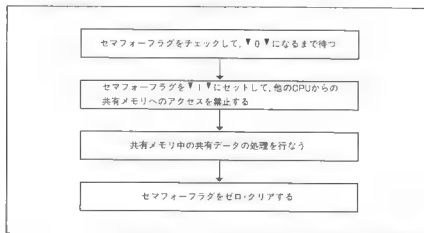 セマフォーフラグをチェックして,▼0▼になるまで待つ
セマフォーフラグを▼1▼にセットして,他のCPUからの
共有メモリへのアクセスを禁止する
共有メモリ中の共有データの処理を行なう
セマフォーフラグをゼロ・クリアする